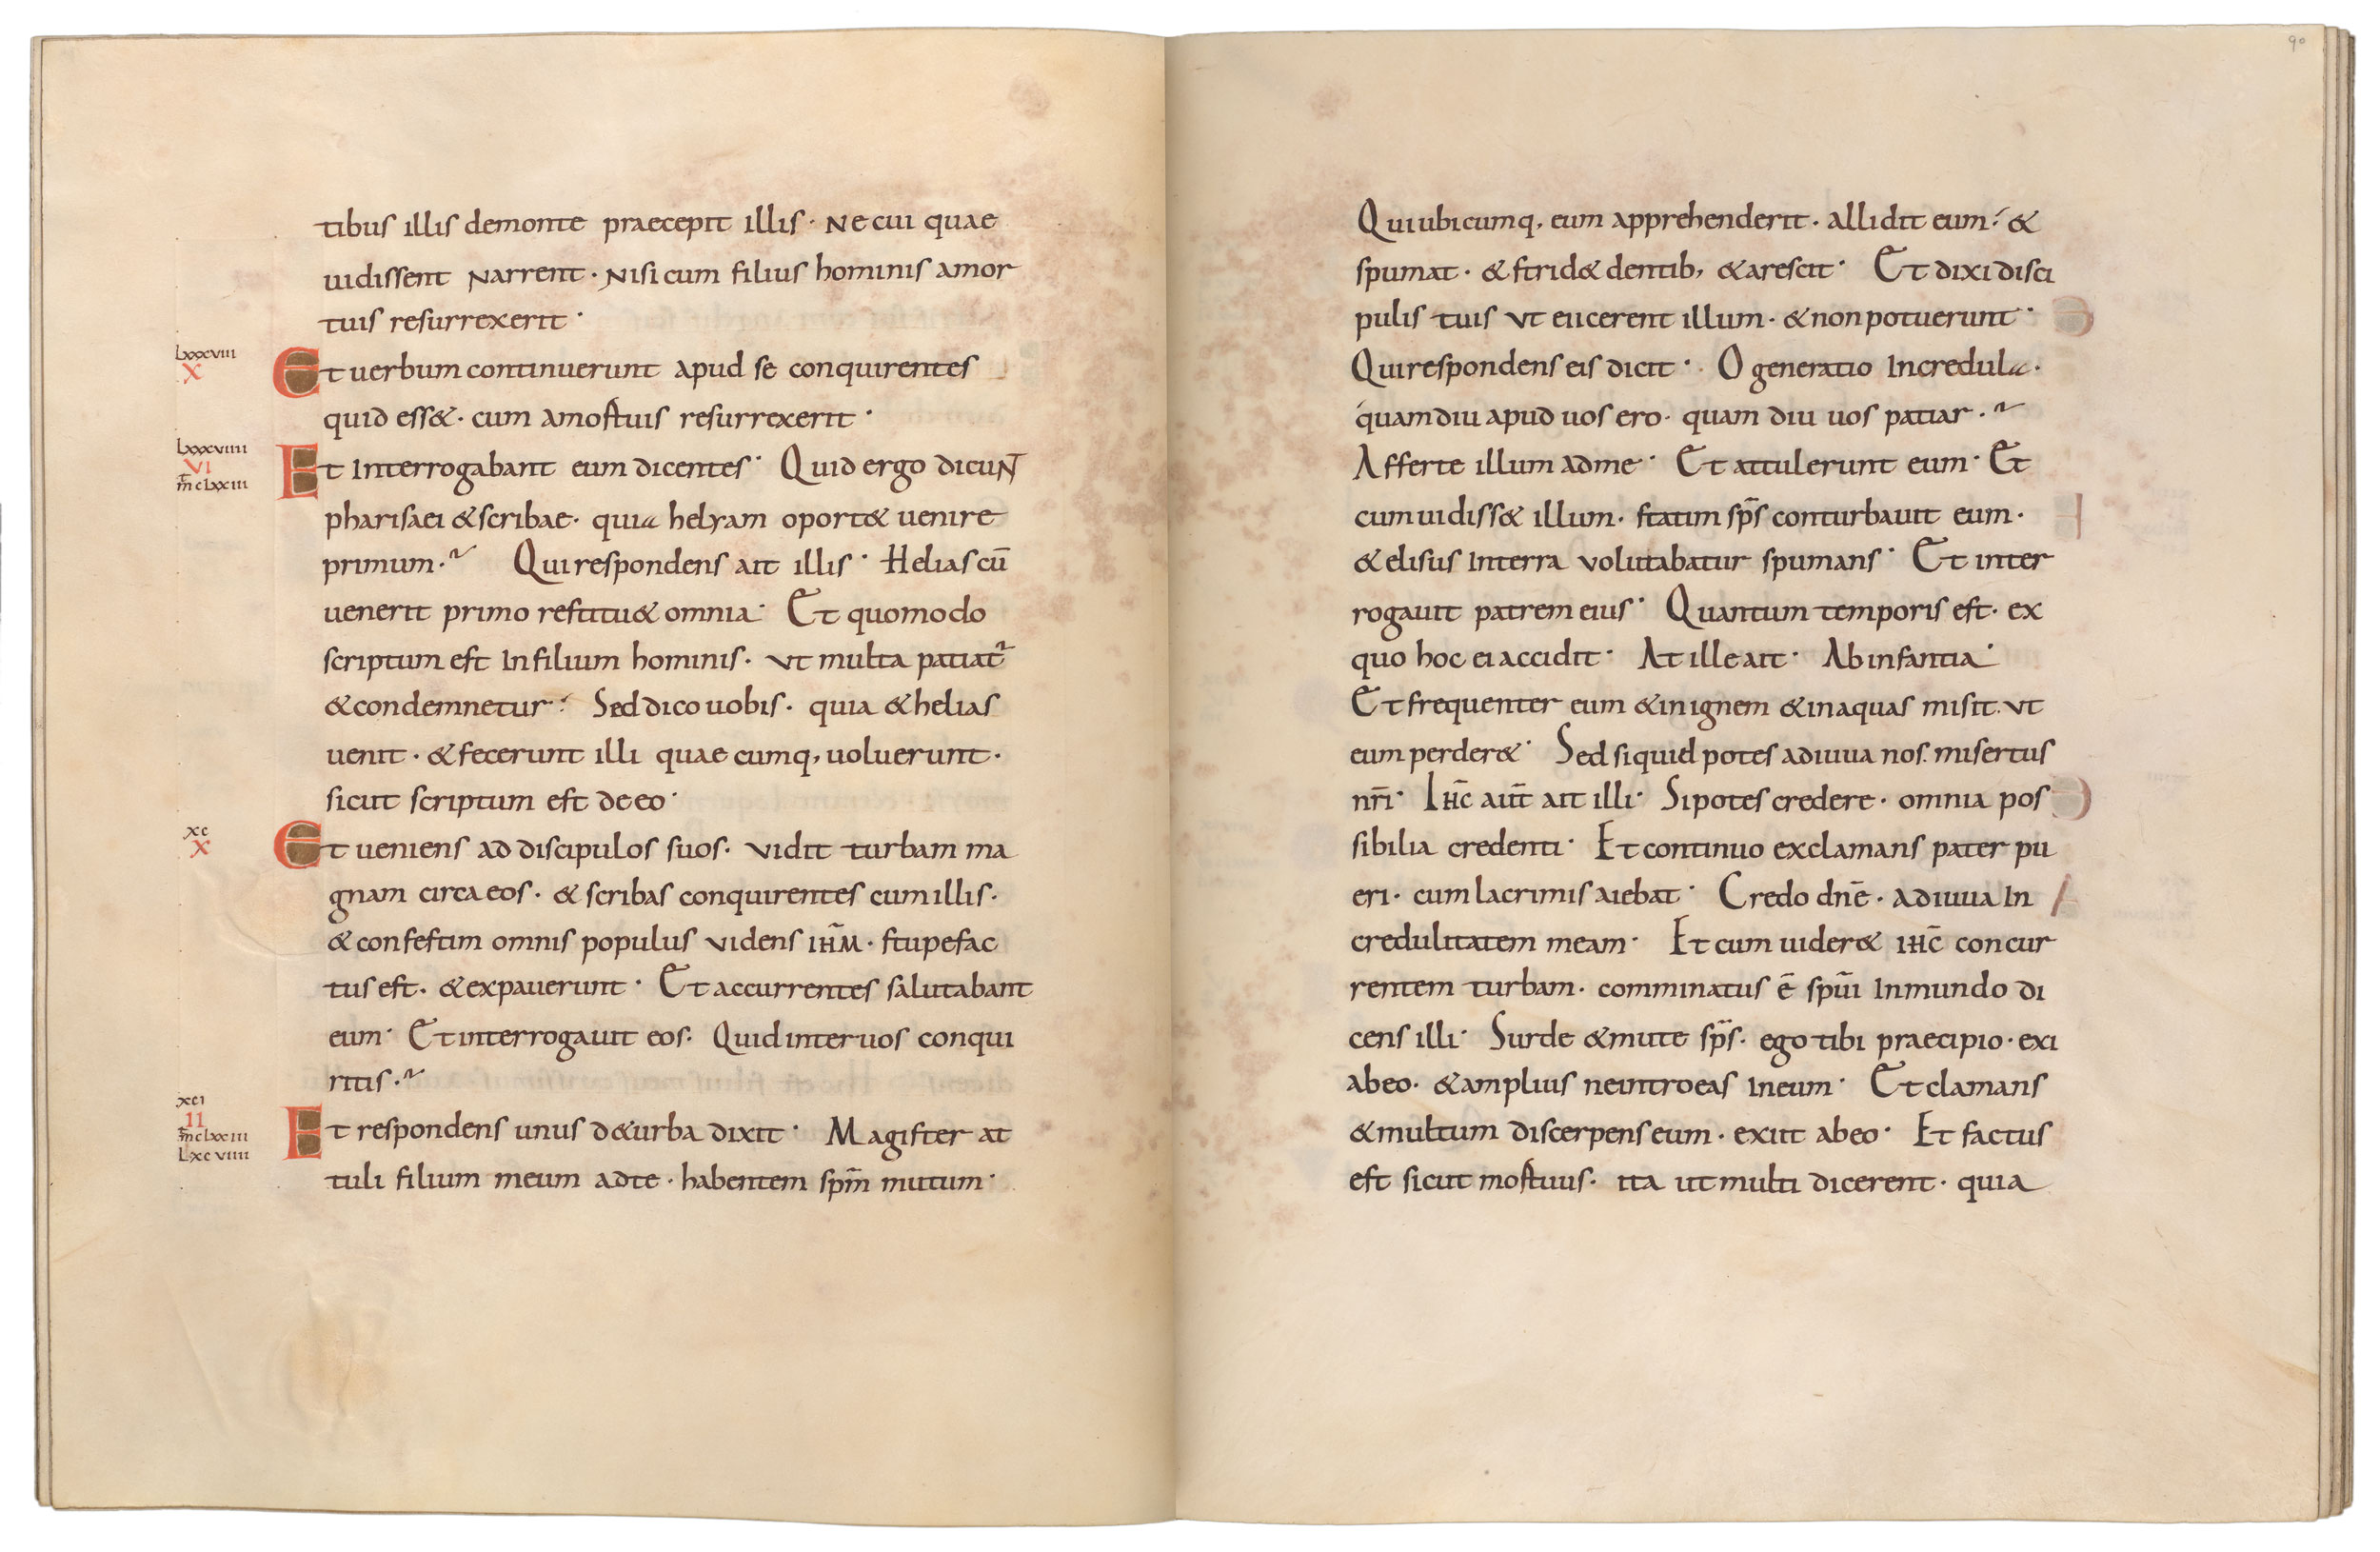 tibus illis demonte praecepit illis · Ne cui quae
uidissent Narrent · Nisi cum filius hominis amor
tuis resurrexerit ·
Lxxxviii
X
Et uerbum continuerunt apud se conquirentes
quid ess& · cum amortuis resurrexerit ·
Lxxxviiii
VI
m̄ cLxxiii
Et Interrogabant eum dicentes · Quid ergo dicunt
pharisaei &scribae · quia helyam oport& uenire
primum ·~ Qui respondens ait illis · Helias cū
uenerit primo restitu& omnia · Et quomodo
scriptum est In filium hominis · vt multa patiat᷑
&condemnetur : Sed dico uobis · quia &helias
uenit · &fecerunt illi quae cumq, uoluerunt ·
sicut scriptum est de eo ·
xc
X
Et ueniens ad discipulos suos · vidit turbam ma
gnam circa eos · & scribas conquirentes cum illis ·
&confestim omnis populus videns IHM̄ · stupefac
tus est · &expauerunt · Et accurrentes salutabant
eum · Et interrogauit eos · Quid inter uos conqui
ritis ·~
xci
II
m̄ cLxxiii
Lxcviiii
Et respondens unus d&urba dixit · Magister at
tuli filium meum adte · habentem spm̄ mutum ·
90
Qui ubicumq, eum apprehenderit · allidit eum : &
spumat · &strid& dentib, &arescit · Et dixi disci
pulis tuis vt eiicerent illum · &non potuerunt ·
Qui respondens eis dicit · O generatio Incredula ·
quamdiu apud uos ero · quam diu uos patiar ·~
Afferte illum adme · Et attulerunt eum · Et
cum uidiss& illum · statim sp̄s conturbauit eum ·
&elisus Interra volutabatur spumans · Et inter
rogauit patrem eius · Quantum temporis est · ex
quo hoc ei accidit · At ille ait · Ab infantia ·
Et frequenter eum &in ignem &in aquas misit · vt
eum perder& · Sed siquid potes adiuua nos · misertus
nr̄i · IHC̄ aut̄ ait illi · Si potes credere · omnia pos
sibilia credenti · Et continuo exclamans pater pu
eri · cum lacrimis aiebat · Credo dnē · adiuua In
credulitatem meam · Et cum uider& IHC̄ concur
rentem turbam · comminatus ē spūi Inmundo di
cens illi · Surde &mute sp̄s · ego tibi praecipio · exi
abeo · &amplius neintroeas In eum · Et clamans
&multum discerpens eum · exiit abeo · Et factus
est sicut mortuus · ita ut multi dicerent · quia